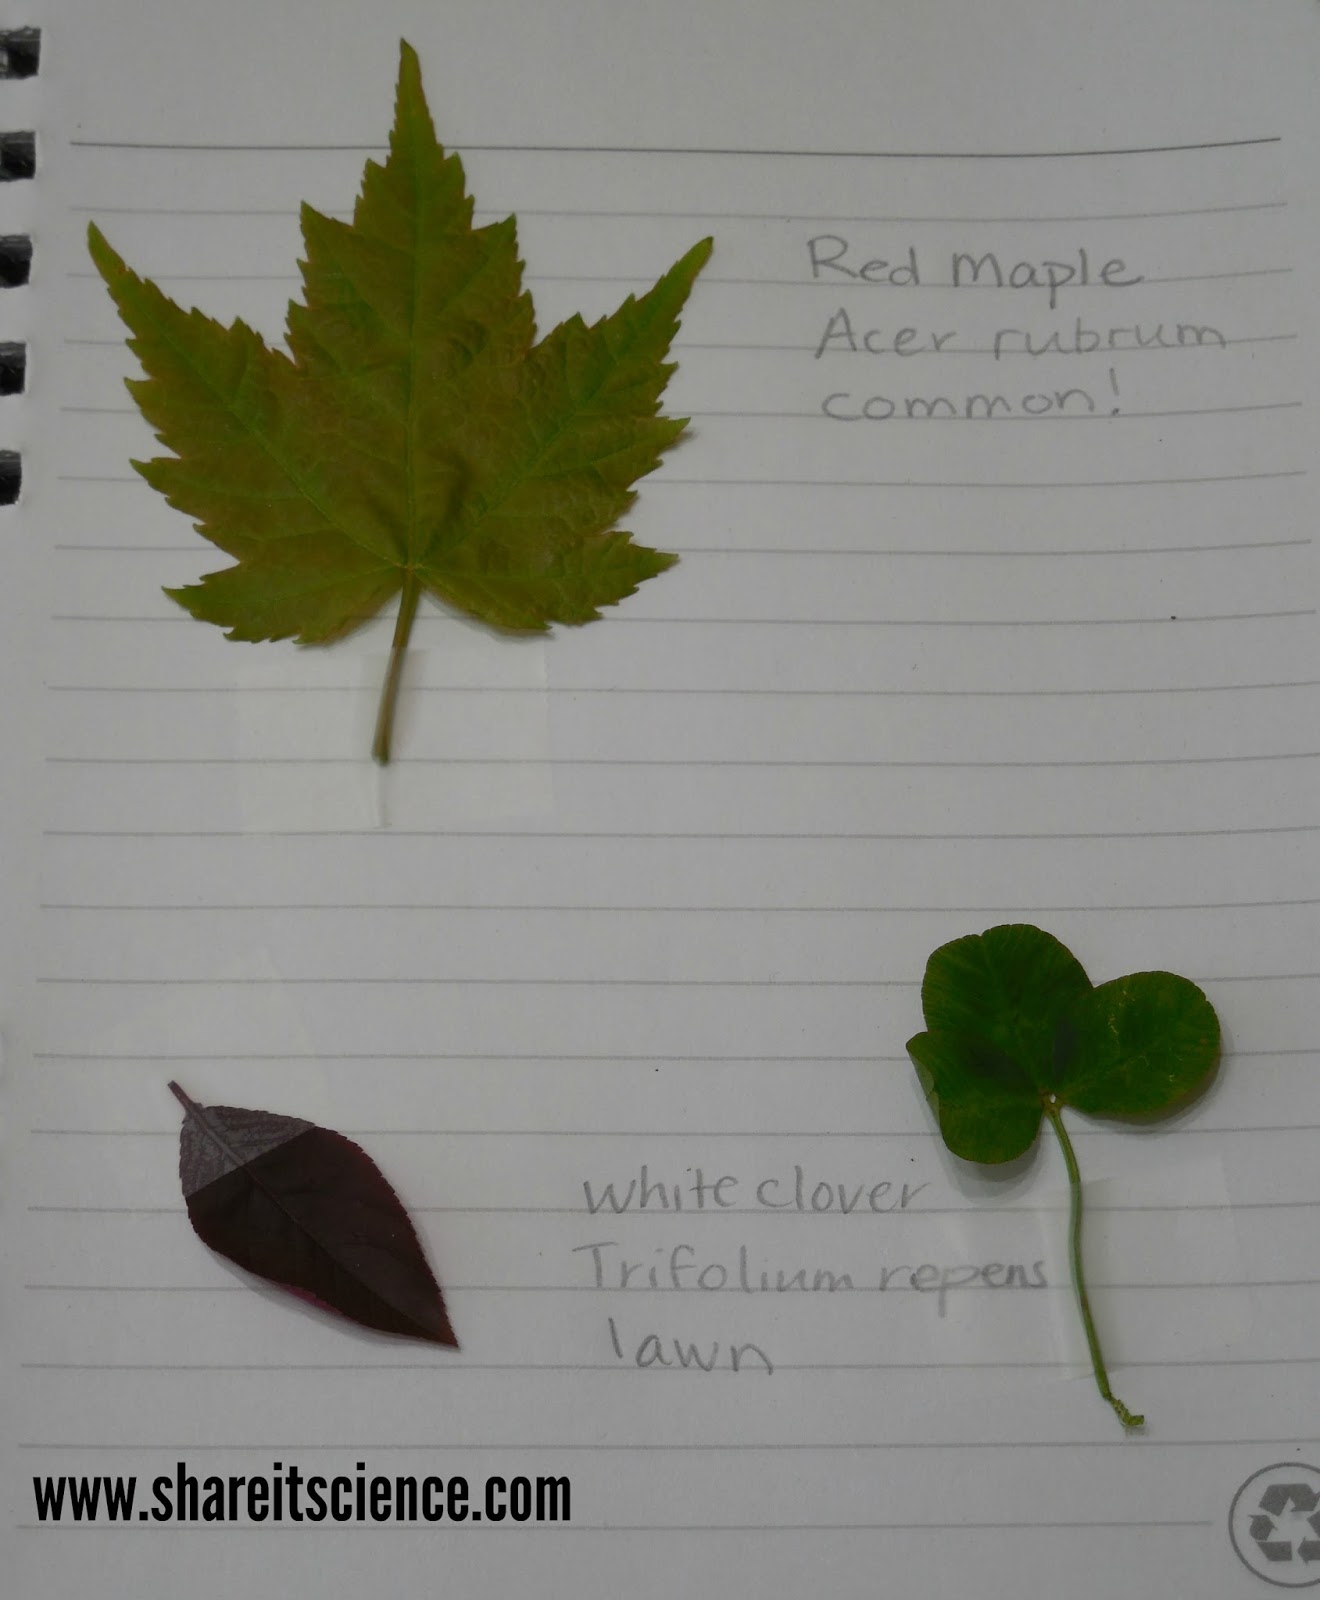 Red Maple
Acer rubrum
common!
white clover
Trifolium repens
lawn
www.shareitscience.com